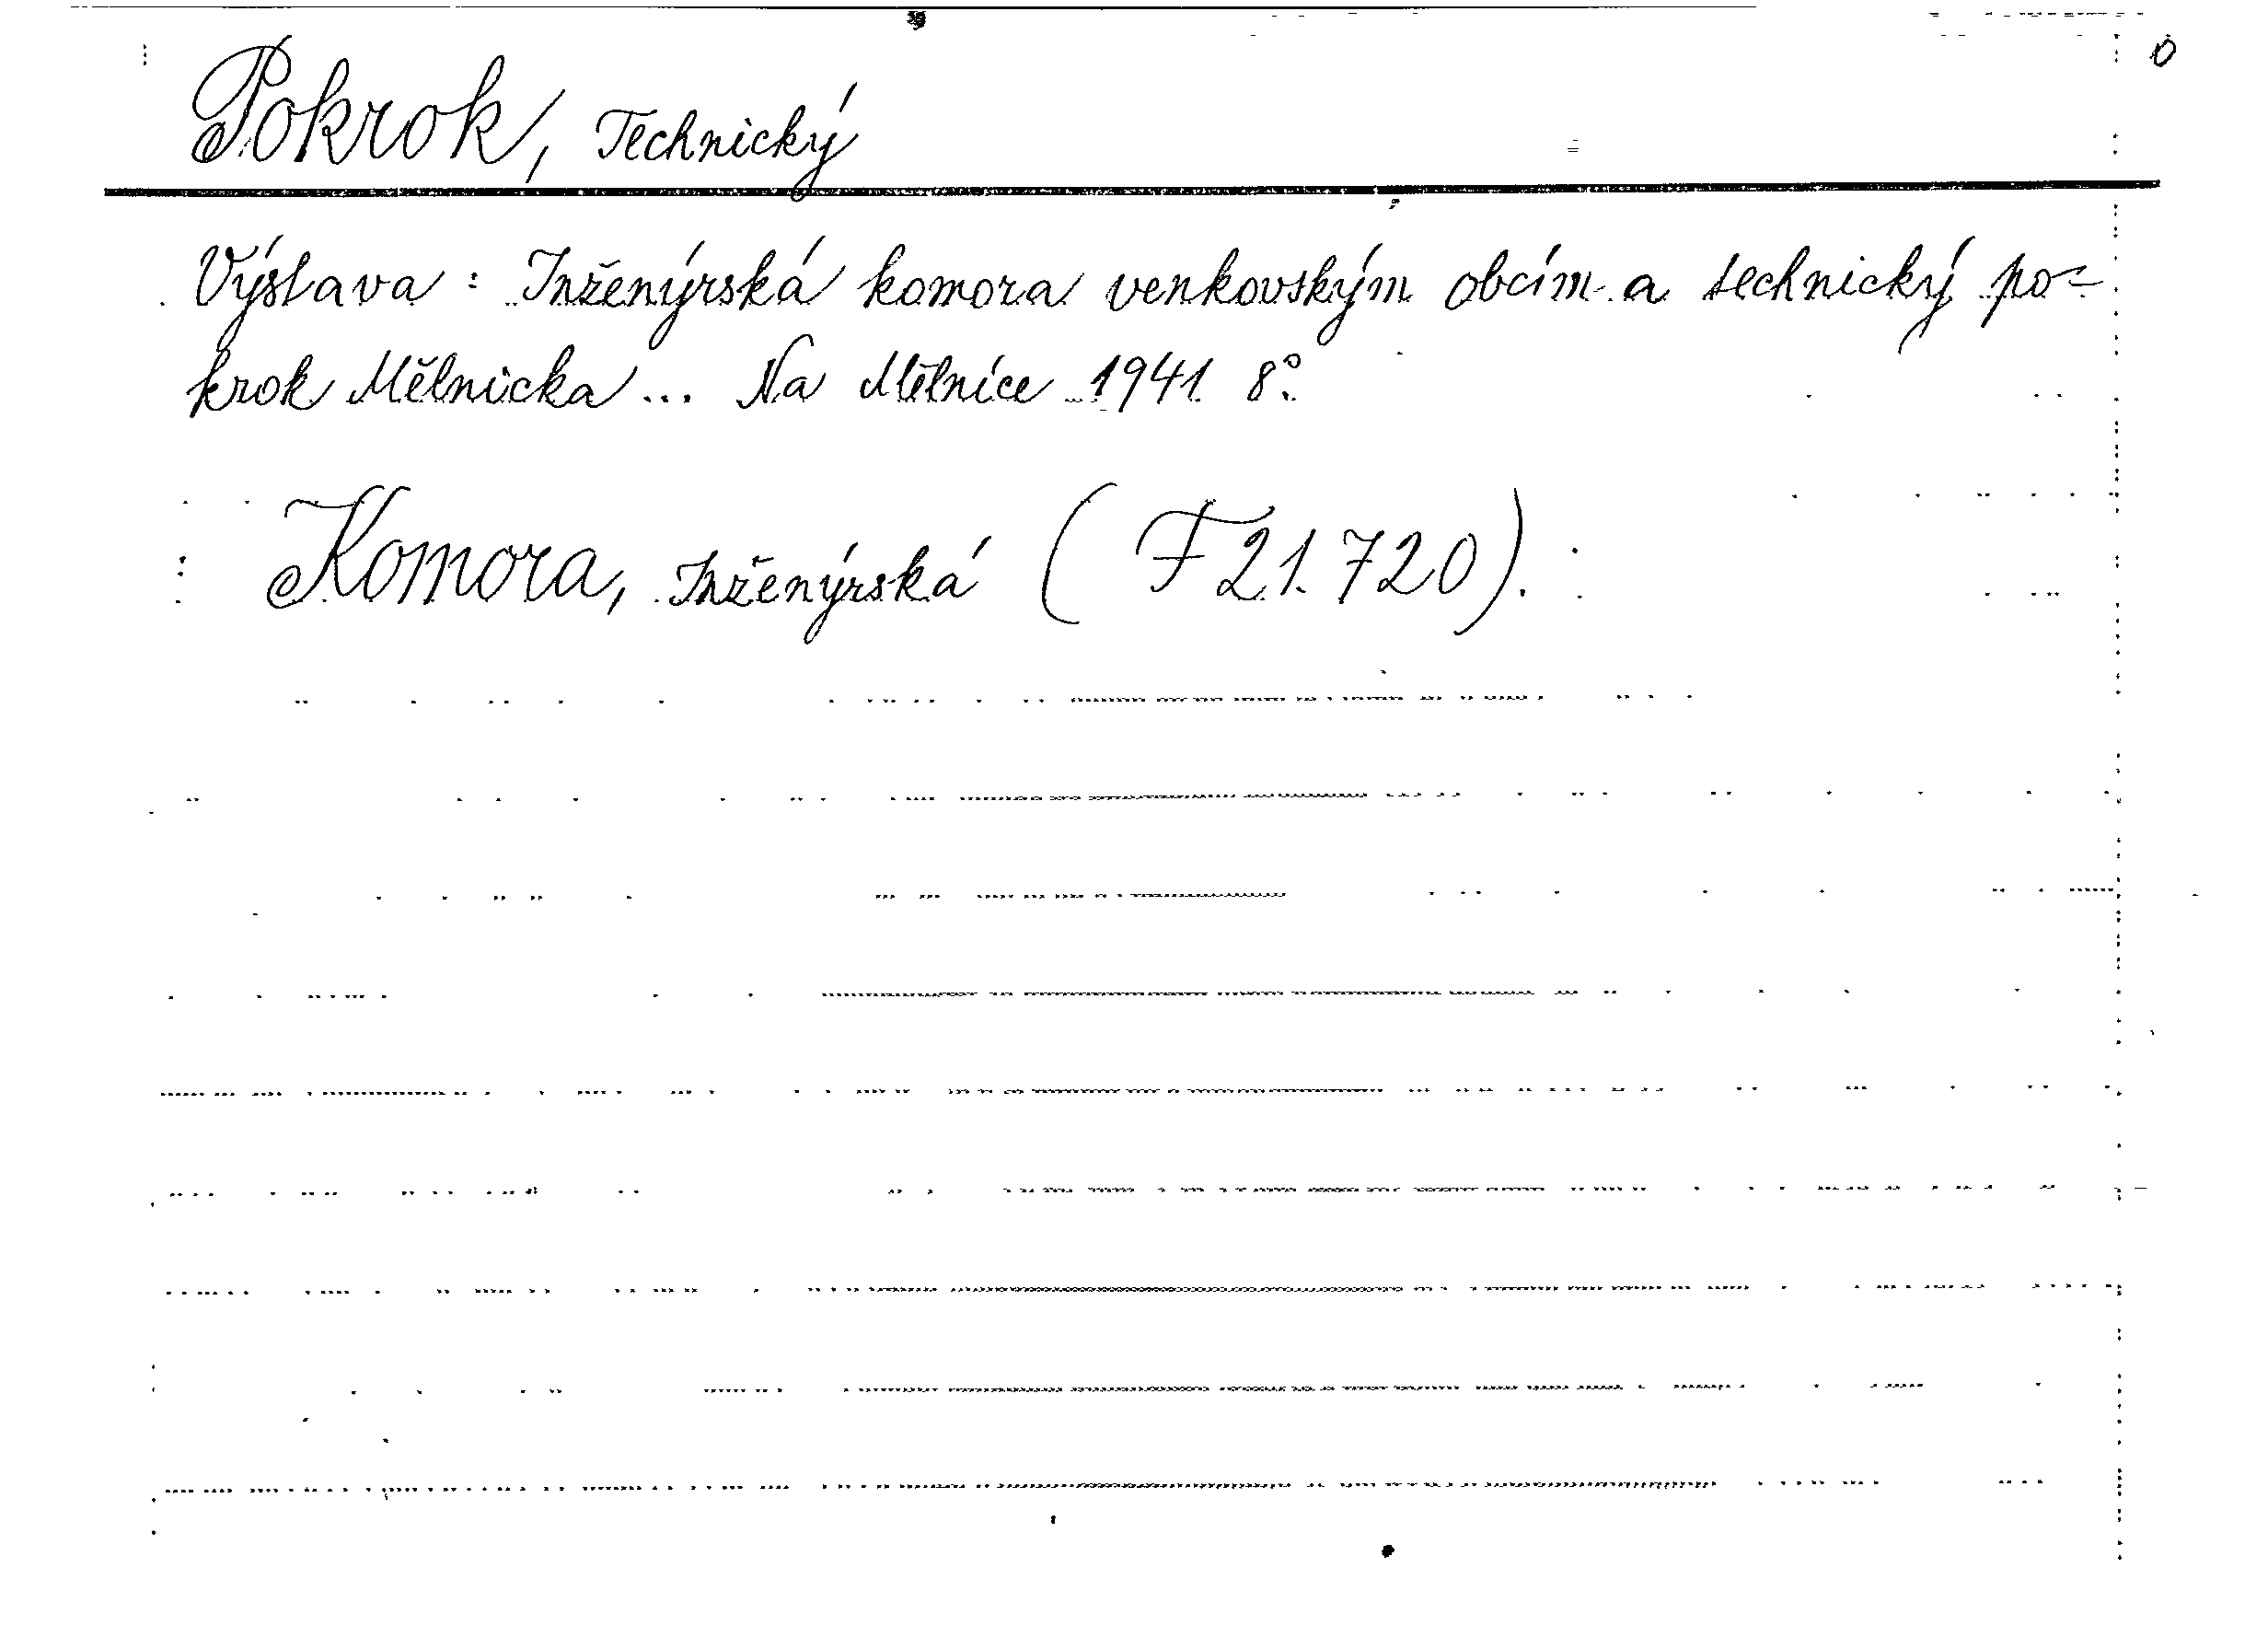 Pokrok, Technický
Výstava: Inženýrská komora venkovským obcím a technický po-
krok Mělnicka... Na Mělníce 1941 8°.
Komora, Inženýrská (F 21.720).